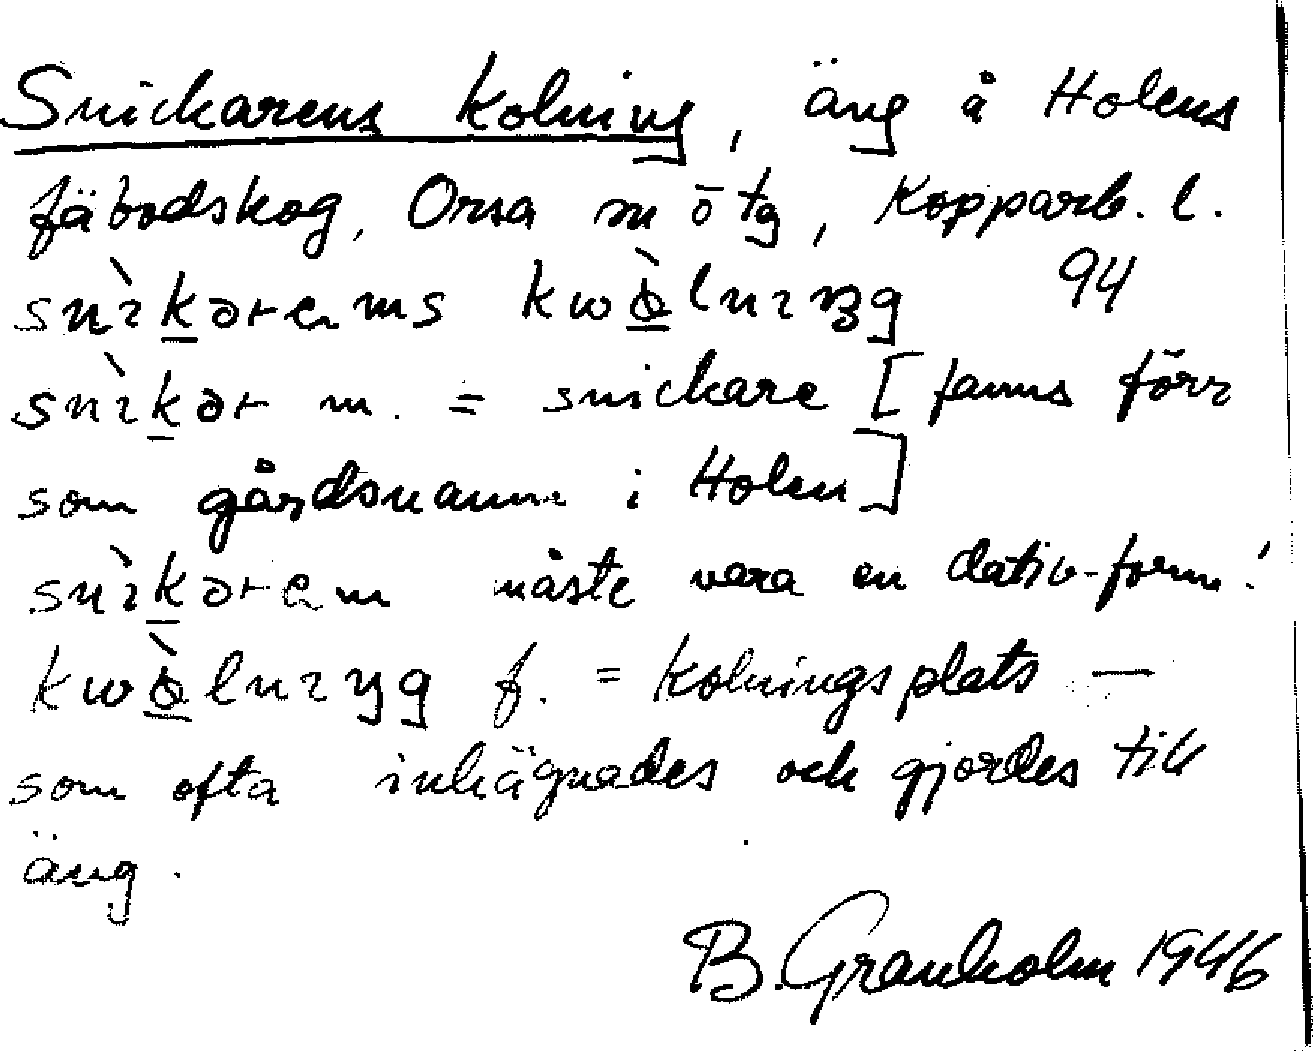 Snickarens kolning, äng å Holens
fäbodskog, Orsa sn ö tg, Kopparb. l.
snìkərems kwòlnɪŋg 94
snìkər m. = snickare [fanns förr
som gårdsnamn i Holen]
snìkərem måste vara en dativ-form!
kwòlnɪŋg f. = kolningsplats —
som ofta inhägnades och gjordes till
äng.
B. Granholm 1946